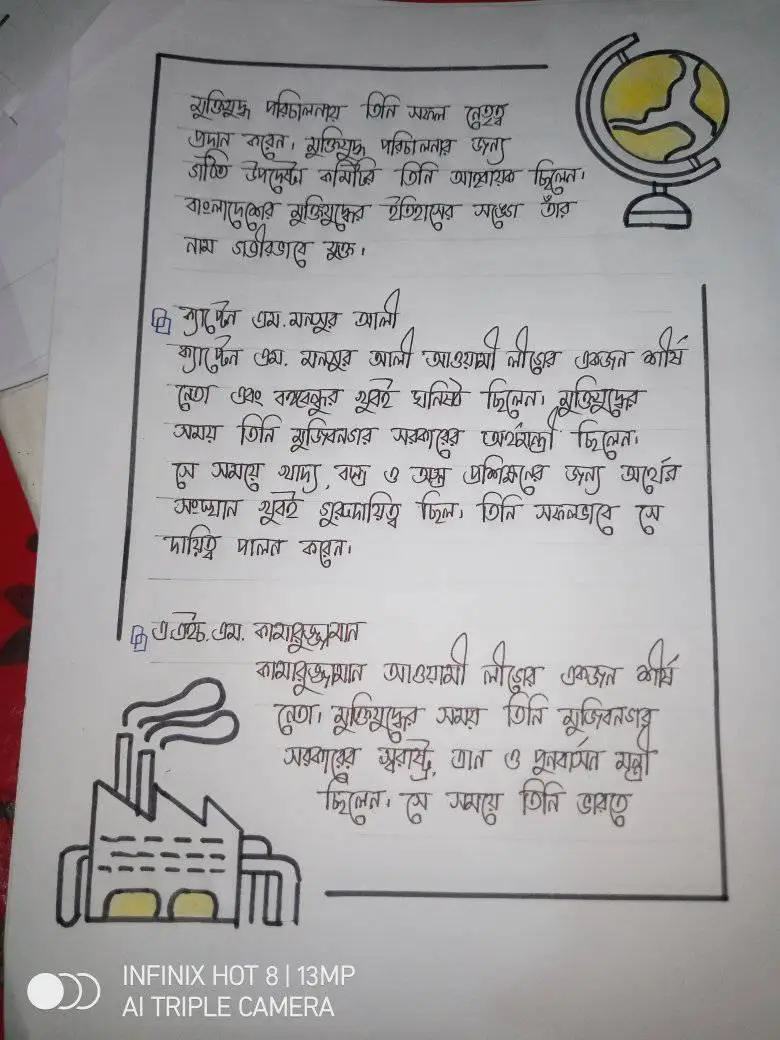 মুক্তিযুদ্ধ পরিচালনায় তিনি সফল নেতৃত্ব
প্রদান করেন। মুক্তিযুদ্ধ পরিচালনার জন্য
গঠিত উপদেষ্টা কমিটির তিনি আহ্বায়ক ছিলেন।
বাংলাদেশের মুক্তিযুদ্ধের ইতিহাসের সঙ্গে তাঁর
নাম গভীরভাবে যুক্ত।
ক্যাপ্টেন এম. মনসুর আলী
ক্যাপ্টেন এম. মনসুর আলী আওয়ামী লীগের একজন শীর্ষ
নেতা এবং বঙ্গবন্ধুর খুবই ঘনিষ্ঠ ছিলেন। মুক্তিযুদ্ধের
সময় তিনি মুজিবনগর সরকারের অর্থমন্ত্রী ছিলেন।
সে সময়ে খাদ্য, বস্ত্র ও অস্ত্র প্রশিক্ষনের জন্য অর্থের
সংস্থান খুবই গুরুদায়িত্ব ছিল। তিনি সফলভাবে সে
দায়িত্ব পালন করেন।
এ.এইচ.এম. কামারুজ্জামান
কামারুজ্জামান আওয়ামী লীগের একজন শীর্ষ
নেতা। মুক্তিযুদ্ধের সময় তিনি মুজিবনগর
সরকারের স্বরাষ্ট্র, ত্রান ও পুনবার্সন মন্ত্রী
ছিলেন। সে সময়ে তিনি ভারতে
INFINIX HOT 8 | 13MP
AI TRIPLE CAMERA